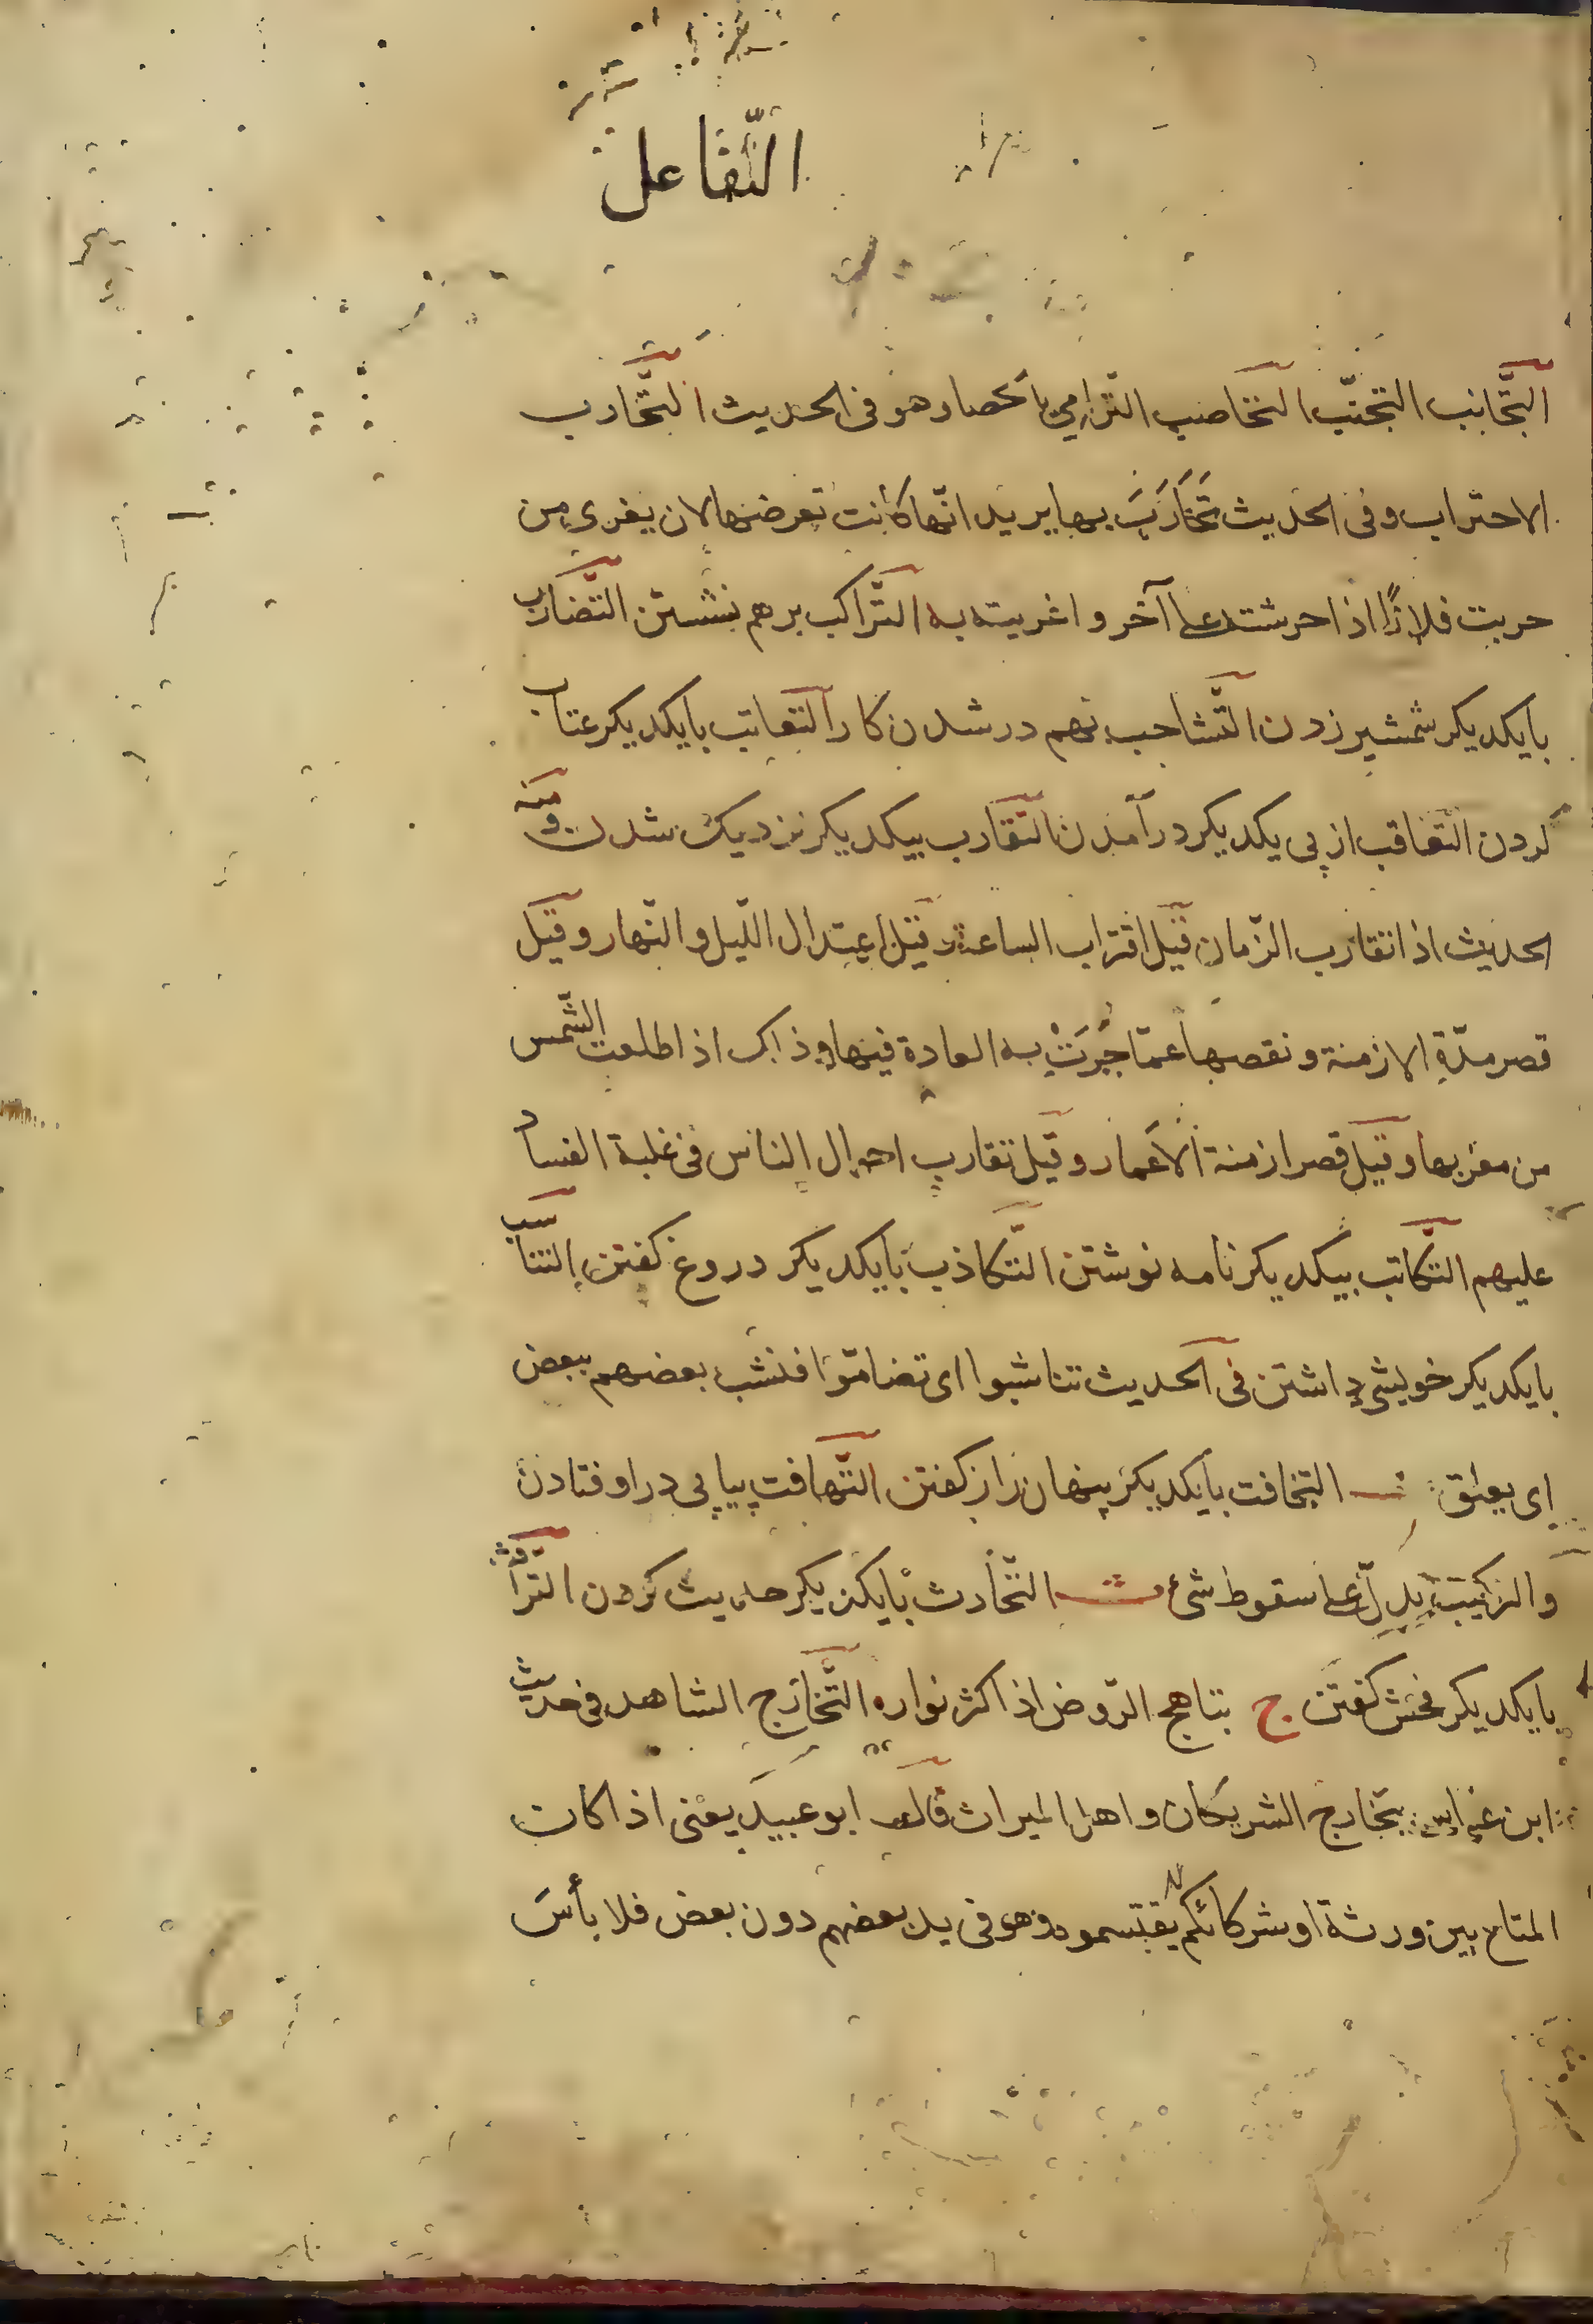 التّفاعل
التَّجانب التجنّب التخاصب التّرامي بالحصار هو فى الحديث التَّحارب
الاحتراب وفى الحديث تَحَارَبَ بها يريد انّها كانت تعرضها لان يغرى من
حربت فلانًا اذا احرشته على آخر واغريته به التَّراكب برهم نشستن التَّضارب
بايكديكر شمشير زدن التَّشاجب بهم در شدن كار التعاتب بايكديكر عتاب
كردن التّعاقب از پى يكديكر درآمدن التّقارب بيكديكر نزديك شدن ومنه
الحديث اذا تقارب الزّمان قيل اقتراب الساعة وقيل اعتدال اللّيل والنّهار وقيل
قصر مدّة الازمنة ونقصها عمّا جَرَتْ به العادة فيها وذاك اذا طلعت الشّمس
من مغربها وقيل قصر ازمنة الأعمار وقيل تقارب احوال الناس فى غلبة الفساد
عليهم التّكاتب بيكديكر نامه نوشتن التّكاذب بايكديكر دروغ كفتن التناسب
بايكديكر خويشى داشتن فى الحديث تناشبوا اى تضامّوا فنشب بعضهم ببعض
اى يعلق ت التخافت بايكديكر پنهان راز كفتن التّهافت پياپى در اوفتادن
والتركيب يدلّ على سقوط شئ ث التّحادث بايكديكر حديث كردن التّرافث
بايكديكر فحش كفتن ج تباهج الرّوض اذا كثر نواره التَّخارج الشاهد فى حديث
ابن عباس يتخارج الشريكان واهل الميراث قال ابو عبيد يعنى اذا كان
المتاع بين ورثة او شركائكم لا يقتسموه وهو فى يد بعضهم دون بعض فلا بأسَ